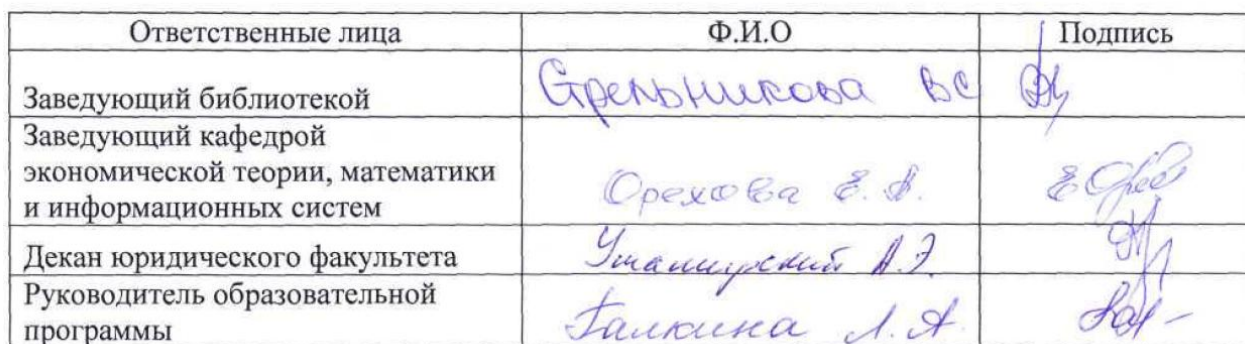 Ответственные лица Ф.И.О Подпись
Заведующий библиотекой Стрельникова ВС
Заведующий кафедрой
экономической теории, математики
и информационных систем Орехова Е. А.
Декан юридического факультета А.Э.
Руководитель образовательной
программы Галкина Л.А.